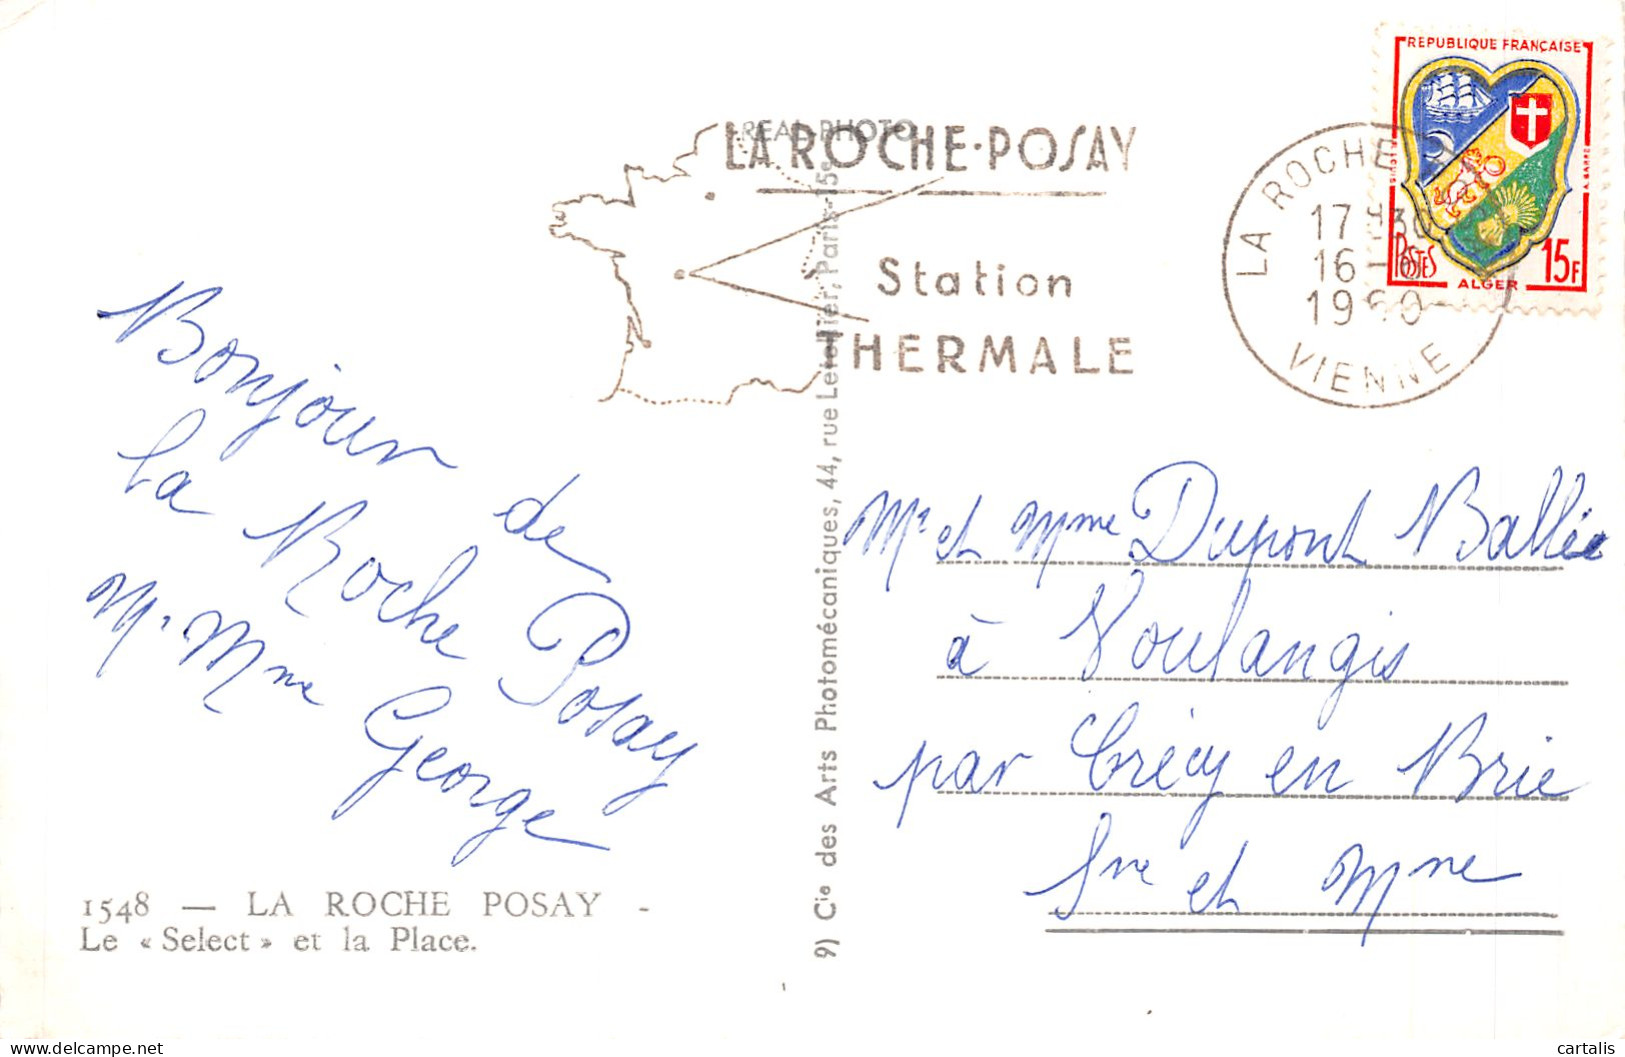 REPUBLIQUE FRANÇAISE
POSTES
15F
ALGER
REAL PHOTO
LA ROCHE-POSAY
Station
THERMALE
LA ROCHE
17H30
16
1960
VIENNE
Bonjour de
La Roche Posay
Mr Mme George
1548 — LA ROCHE POSAY -
Le « Select » et la Place.
9) Cie des Arts Photomécaniques, 44, rue Letellier, Paris-15e
Mr et Mme Dupont Ballée
à Voulangis
par Crécy en Brie
Sne et Mne
cartalis